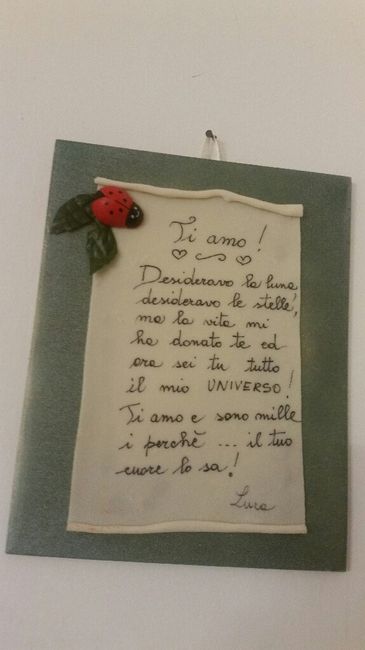 Ti amo!
Desideravo la luna
desideravo le stelle,
ma la vita mi
ha donato te ed
ora sei tu tutto
il mio UNIVERSO!
Ti amo e sono mille
i perchè ... il tuo
cuore lo sa!
Luca